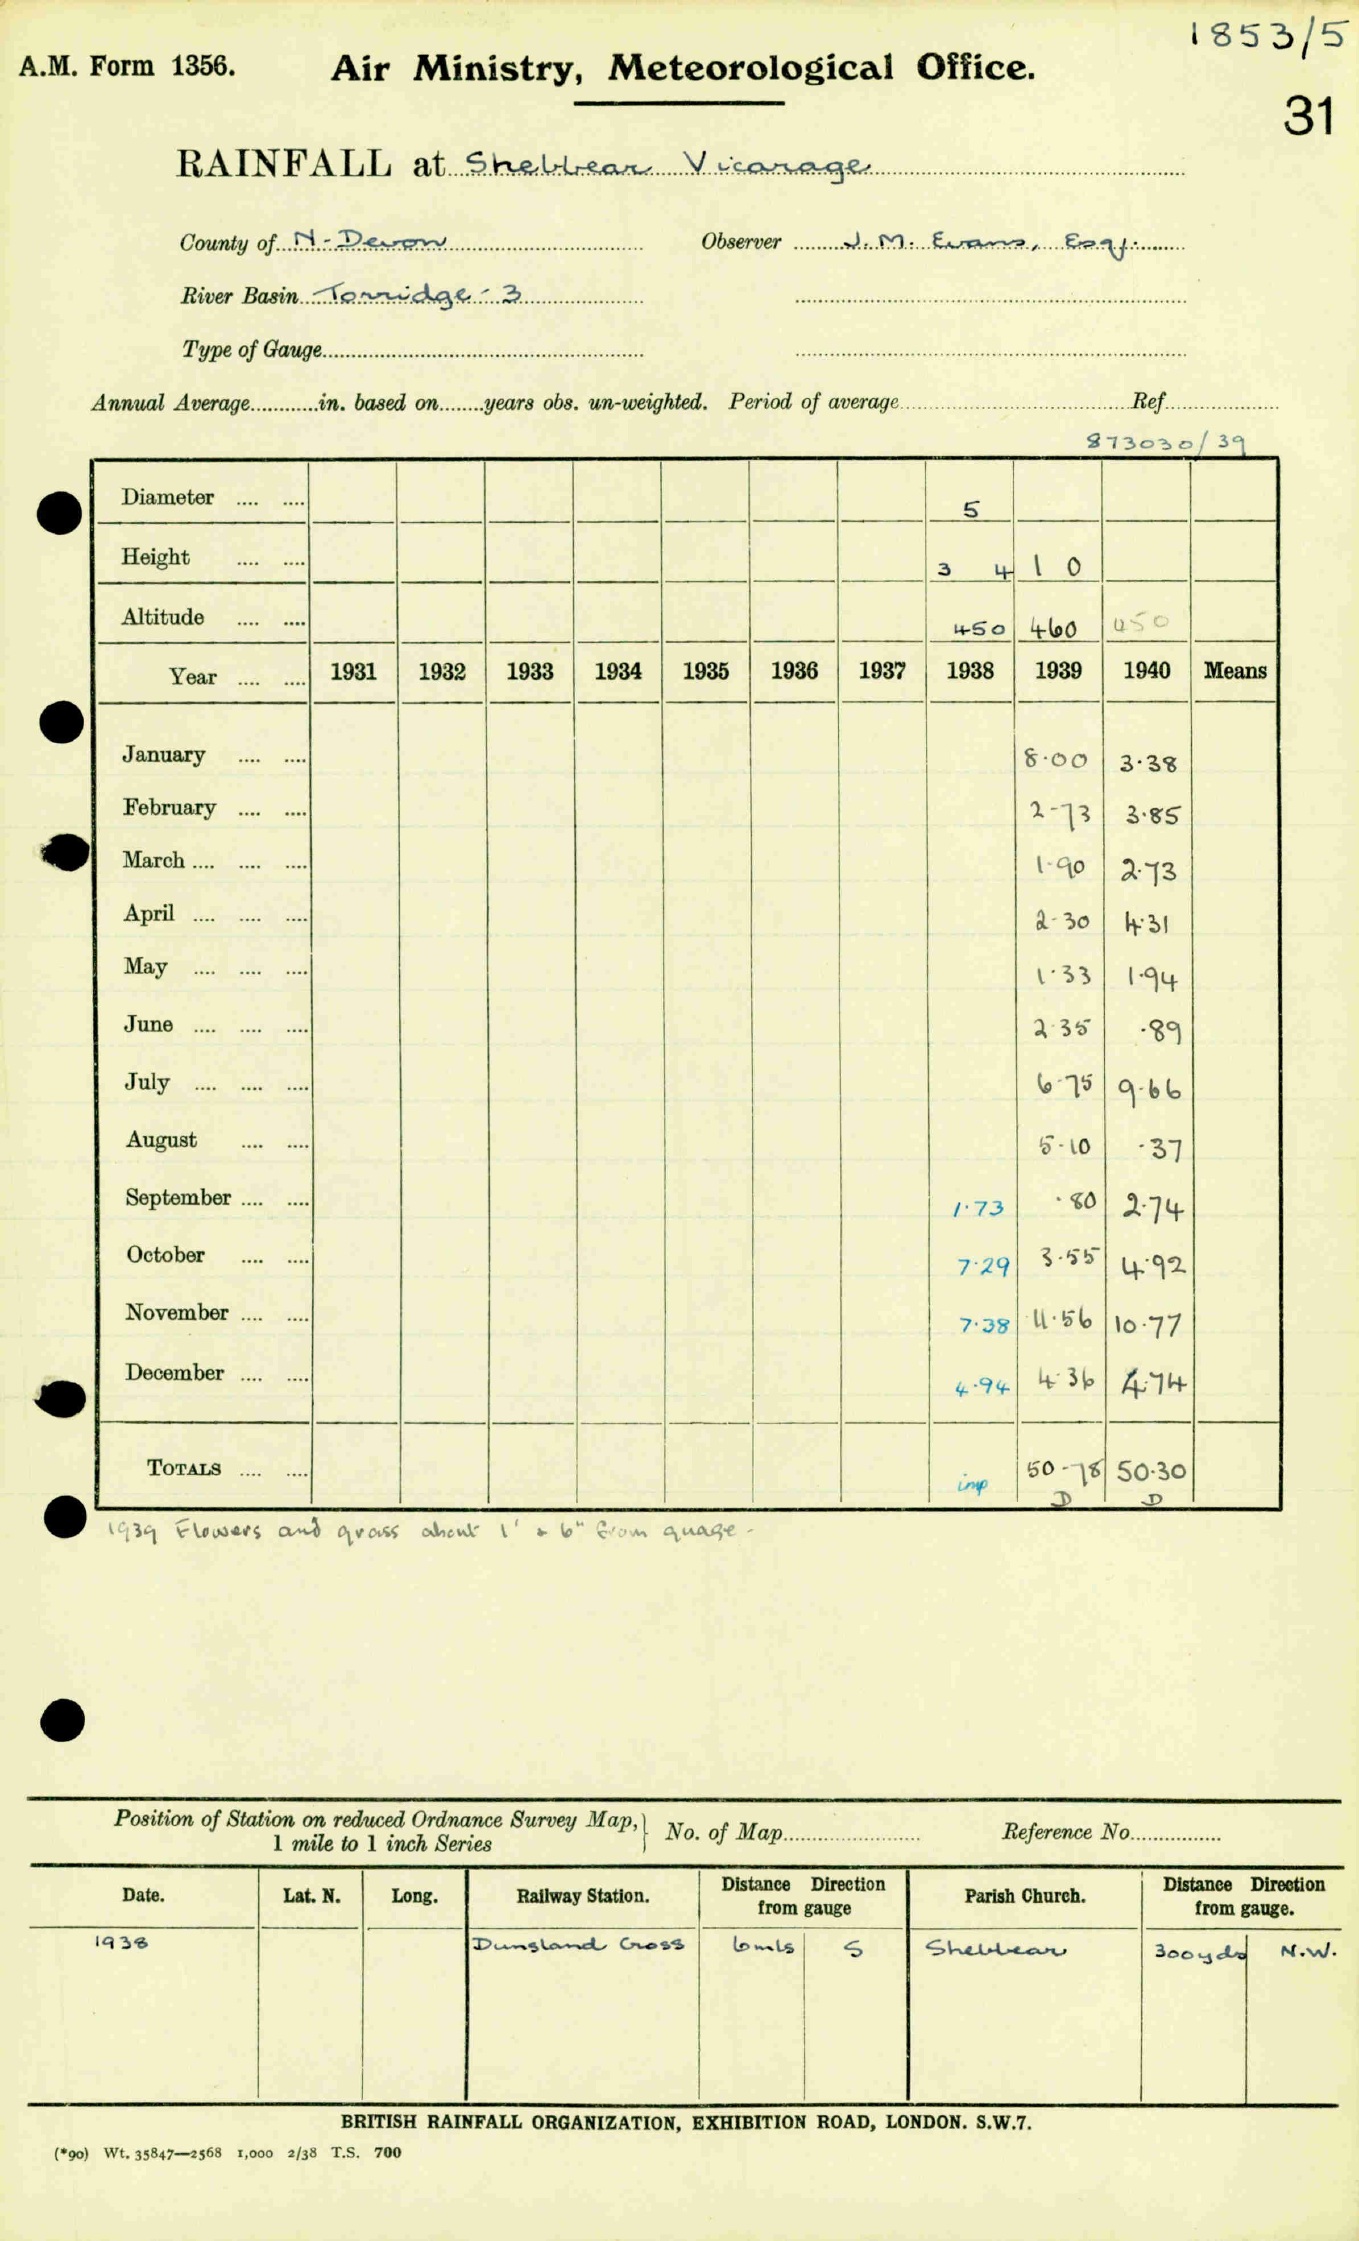 1853/5
A.M. Form 1356. Air Ministry, Meteorological Office.
31
RAINFALL at Shebbear Vicarage
County of N. Devon Observer J. M. Evans, Esq.
River Basin Torridge - 3
Type of Gauge
Annual Average............in. based on........years obs. un-weighted. Period of average Ref.
873030/39
Diameter .... .... 5
Height .... .... 3 4 1 0
Altitude .... .... 450 460 450
Year .... .... 1931 1932 1933 1934 1935 1936 1937 1938 1939 1940 Means
January .... .... 8.00 3.38
February .... .... 2.73 3.85
March .... .... .... 1.90 2.73
April .... .... .... 2.30 4.31
May .... .... .... 1.33 1.94
June .... .... .... 2.35 .89
July .... .... .... 6.75 9.66
August .... .... 5.10 .37
September .... .... 1.73 .80 2.74
October .... .... 7.29 3.55 4.92
November .... .... 7.38 11.56 10.77
December .... .... 4.94 4.36 4.74
TOTALS .... .... imp 50.78 50.30
D D
1939 Flowers and grass about 1' & 6" from guage -
Position of Station on reduced Ordnance Survey Map,
1 mile to 1 inch Series
No. of Map Reference No.
Date. Lat. N. Long. Railway Station. Distance Direction from gauge Parish Church. Distance Direction from gauge.
1938 Dunsland Cross 6mls S Shebbear 300yds N.W.
BRITISH RAINFALL ORGANIZATION, EXHIBITION ROAD, LONDON. S.W.7.
(*90) Wt. 35847—2568 1,000 2/38 T.S. 700